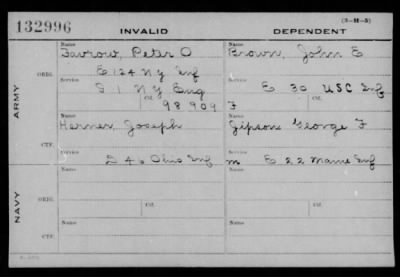 (3-H-5)
132996 INVALID DEPENDENT
Name Name
Favrow, Peter O Brown, John E
ORIG. Service Service
E 124 N Y Inf E 30 USC Inf
S 1 N Y Eng Ctf.
Ctf. 98909 F
ARMY
Name Name
Herner, Joseph Jipson George F
CTF. Service Service
D 46 Ohio Inf m E 22 Maine Inf
NAVY
Name Name
ORIG.
Service Service
Ctf. Ctf.
Name Name
CTF.
Service Service